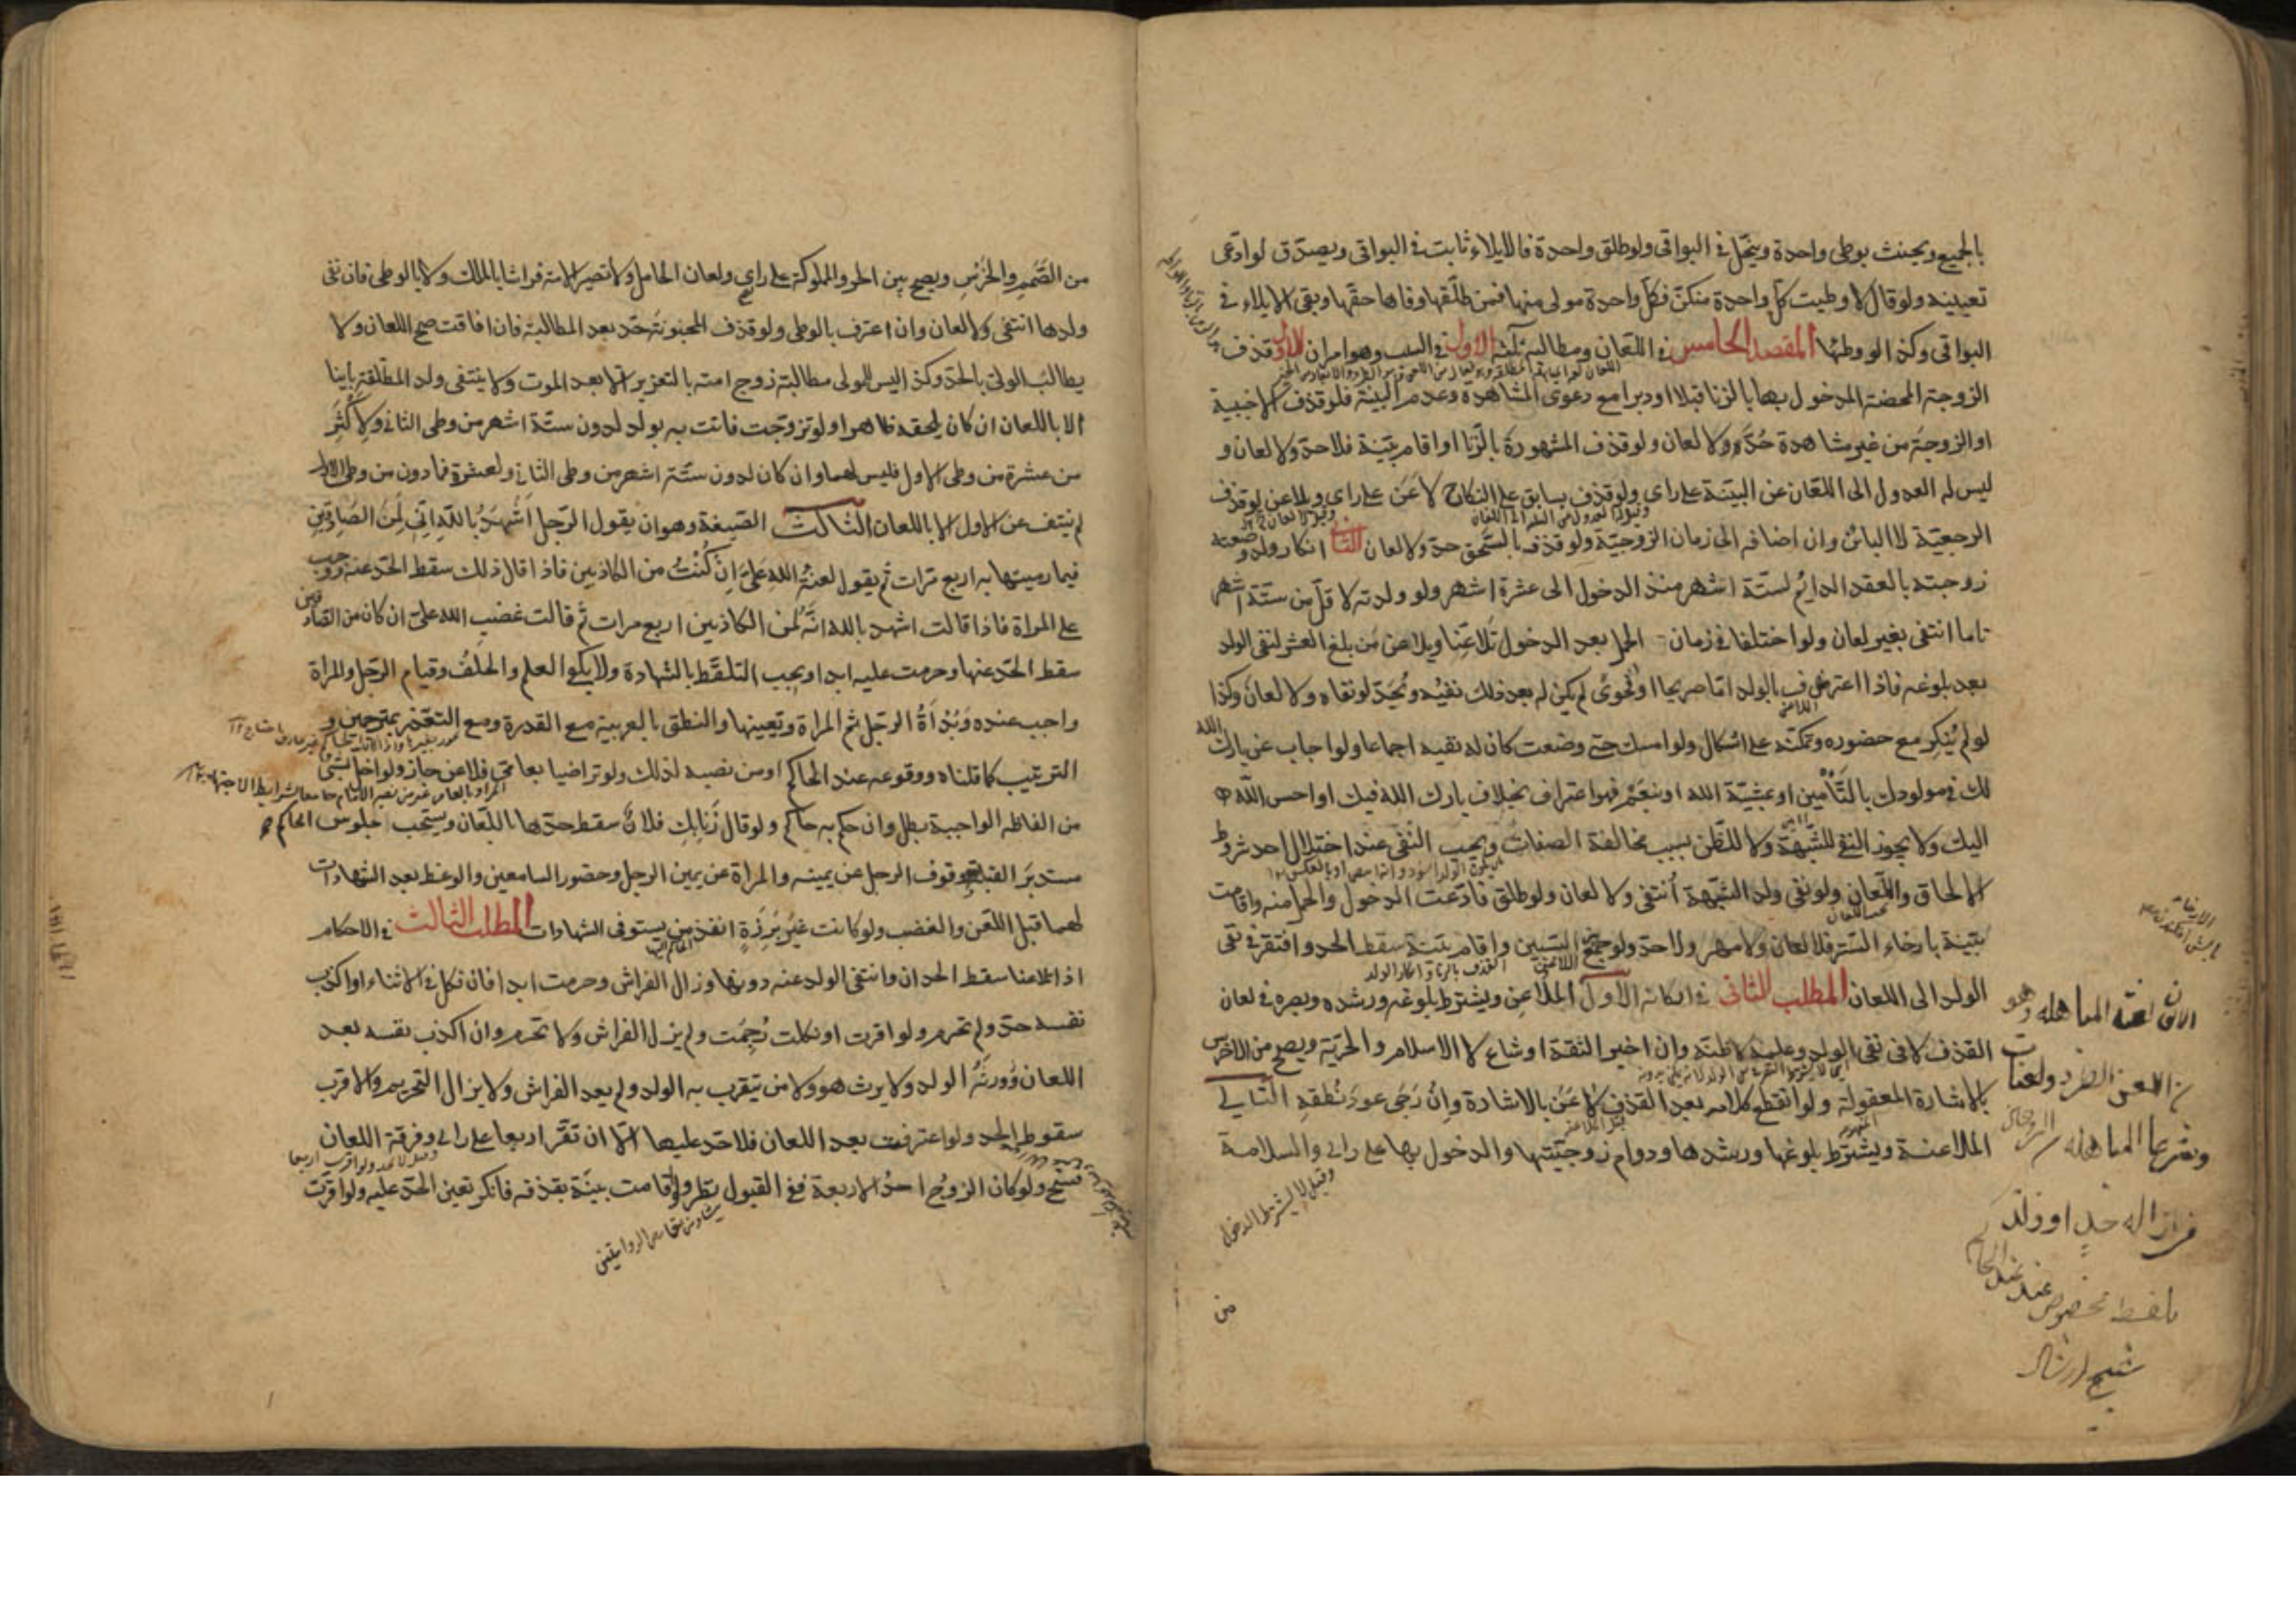 بالجميع ويحنث بوطى واحدة وينحل فى البواقى ولو طلق واحدة فالايلاء ثابت فى البواقى ويصدق لو ادعى
تعيينه ولو قال لا وطيت كل واحدة منكن فكل واحدة مولى منها فمن طلقها وفاها حقها وبقى الايلاء فى
البواقى وكذا لو وطئها المقصد الخامس فى اللعان ومطالبه ثلثة الاول فى السبب وهو امران الاول قذف
الزوجة المحصنة المدخول بها بالزنا قبلا او دبرا مع دعوى المشاهدة وعدم البينة فلو قذف الاجنبية
او الزوجة من غير مشاهدة حُدَّ ولا لعان ولو قذف المشهورة بالزنا او اقام بينة فلا حد ولا لعان و
ليس له العدول الى اللعان عن البينة على راى ولو قذف بسابق على النكاح لاعن على راى ويلاعن لو قذف
الرجعية لا البائن وان اضافه الى زمان الزوجية ولو قذف بالسحق حد ولا لعان الثانى انكار ولد وضعته
زوجته بالعقد الدايم لستة اشهر منذ الدخول الى عشرة اشهر ولو ولدته لاقل من ستة اشهر
تاما انتفى بغير لعان ولو اختلفا فى زمان الحمل بعد الدخول تلاعنا ويلاعن من بلغ العشر لنفى الولد
بعد بلوغه فاذا اعترف بالولد اما صريحا او فحوى لم يكن له بعد ذلك نفيه ويحد لو نفاه ولا لعان وكذا
لو لم ينكر مع حضوره وتمكنه على اشكال ولو امسك حتى وضعت كان له نفيه اجماعا ولو اجاب عن بارك الله
لك فى مولودك بالتأمين او بمشية الله او بنعم فهو اعتراف بخلاف بارك الله فيك او احسن الله
اليك ولا يجوز النفى للشبهة ولا للظن بسبب مخالفة الصفات ويجب النفى عند اختلال احد شروط
الالحاق واللعان ولو نفى ولد الشبهة انتفى ولا لعان ولو طلق فادعت الدخول والحمل منه واقامت
بينة بارخاء الستر فلا لعان ولا مهر ولا حد ولو جمع السببين واقام بينة سقط الحد وافتقر فى نفى
الولد الى اللعان المطلب الثانى فى اركانه الاول الملاعن ويشترط بلوغه ورشده وبصره فى لعان
القذف لا فى نفى الولد وعلمه لا ظنه وان اخبر الثقة او شاع لا الاسلام والحرية ويصح من الاخرس
بالاشارة المعقولة ولو انقطع كلامه بعد القذف لاعن بالاشارة وان رجى عود نطقه الثانى
الملاعنة ويشترط بلوغها ورشدها ودوام زوجيتها والدخول بها على راى والسلامة
وقيل لا يشترط الدخول
من
من الصمم والخرس ويصح بين الحر والمملوكة على راى ولعان الحامل ولا تصير الامة فراشا بالملك ولا بالوطى فان نفى
ولدها انتفى ولا لعان وان اعترف بالوطى ولو قذف المجنونة حد بعد المطالبة فان افاقت صح اللعان ولا
يطالب الولى بالحد وكذا ليس للمولى مطالبة زوج امته بالتعزير الا بعد الموت ولا ينتفى ولد المطلقة باينا
الا باللعان ان كان يلحقه ظاهرا ولو تزوجت فاتت به بولد لدون ستة اشهر من وطى الثانى ولاكثر
من عشرة من وطى الاول فليس لهما وان كان لدون ستة اشهر من وطى الثانى ولعشرة فما دون من وطى الاول
لم ينتف عن الاول الا باللعان الثالث الصيغة وهو ان يقول الرجل اشهد بالله انى لمن الصادقين
فيما رميتها به اربع مرات ثم يقول لعنة الله على ان كنت من الكاذبين فاذا قال ذلك سقط الحد عنه ووجب
على المراة فاذا قالت اشهد بالله انه لمن الكاذبين اربع مرات ثم قالت غضب الله على ان كان من الصادقين
سقط الحد عنها وحرمت عليه ابدا ويجب التلفظ بالشهادة ولا يكفى العلم والحلف وقيام الرجل والمراة
واجب عنده وبدأة الرجل ثم المراة وتعيينها والنطق بالعربية مع القدرة ومع التعذر بمترجمين و
الترتيب كما قلناه ووقوعه عند الحاكم او من نصبه لذلك ولو تراضيا بعامى فلاعن جاز ولو اخل بشئ
من الفاظه الواجبة بطل وان حكم به حاكم ولو قال زنا بك فلان سقط حدها باللعان ويستحب جلوس الحاكم
مستدبر القبلة ووقوف الرجل عن يمينه والمراة عن يمين الرجل وحضور السامعين والوعظ بعد الشهادات
لهما قبل اللعن والغضب ولو كانت غير برزة انفذ من يستوفى الشهادات المطلب الثالث فى الاحكام
اذا تلاعنا سقط الحدان وانتفى الولد عنه دونها وزال الفراش وحرمت ابدا فان نكل فى الاثناء او اكذب
نفسه حد ولم تحرم ولو اقرت او نكلت رجمت ولم يزل الفراش ولا تحرم وان اكذب نفسه بعد
اللعان وورثه الولد ولا يرث هو ولا من يتقرب به الولد ولم يعد الفراش ولا يزال التحريم والاقرب
سقوط الحد ولو اعترفت بعد اللعان فلا حد عليها الا ان تقر اربعا على راى وفرقة اللعان
فسخ ولو كان الزوج احد الاربعة ففى القبول نظر ولو اقامت بينة بقذفه فانكر تعين الحد عليه ولو اقرت